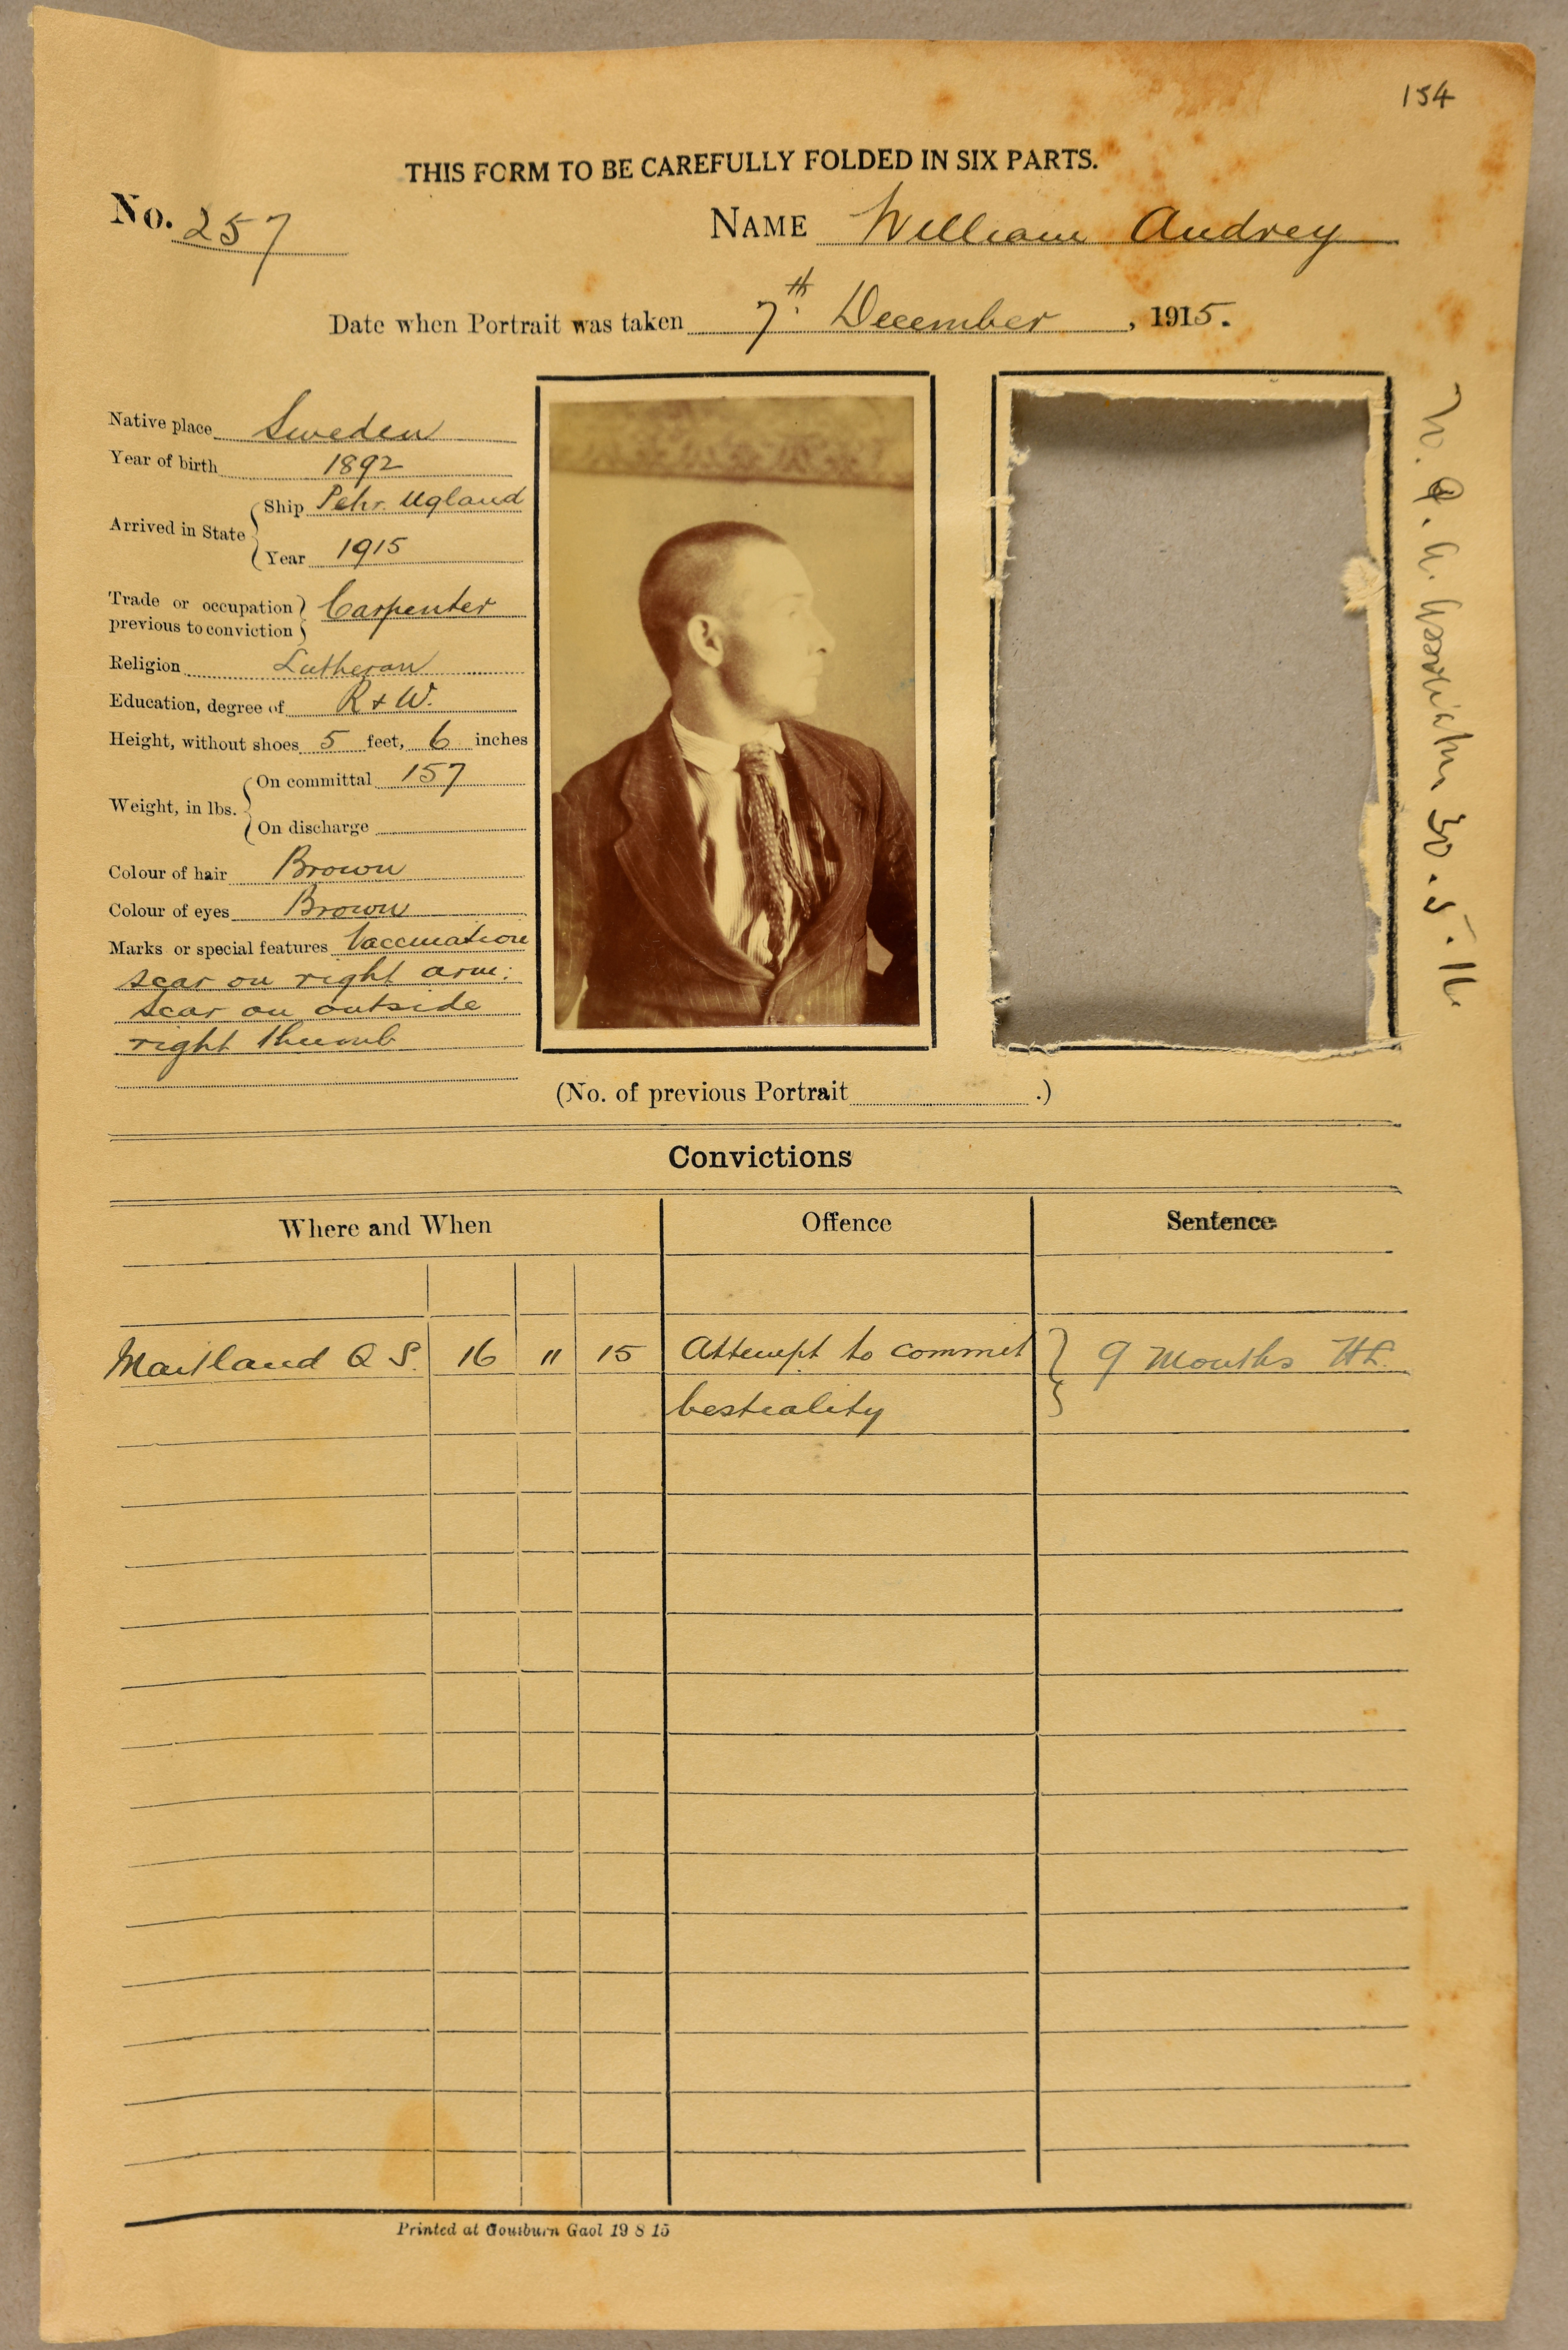 154
THIS FORM TO BE CAREFULLY FOLDED IN SIX PARTS.
No. 257
NAME William Audrey
Date when Portrait was taken 7th December, 1915.
Native place Sweden
Year of birth 1892
Arrived in State Ship Pehr. Ugland
Year 1915
Trade or occupation previous to conviction Carpenter
Religion Lutheran
Education, degree of R & W.
Height, without shoes 5 feet, 6 inches
Weight, in lbs. On committal 157
On discharge
Colour of hair Brown
Colour of eyes Brown
Marks or special features Vaccination
scar on right arm:
scar on outside
right thumb
30.5.16
(No. of previous Portrait .)
Convictions
Where and When Offence Sentence
Maitland Q S. 16 11 15 Attempt to commit 9 Months HL.
bestiality
Printed at Goulburn Gaol 19 8 15